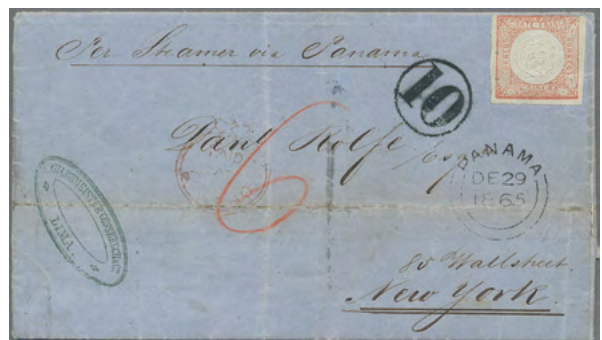 Per Steamer via Panama
10
6
Danl Rolfe Esq
PANAMA
DE 29
1865
LIMA
85 Wallstreet.
New York.